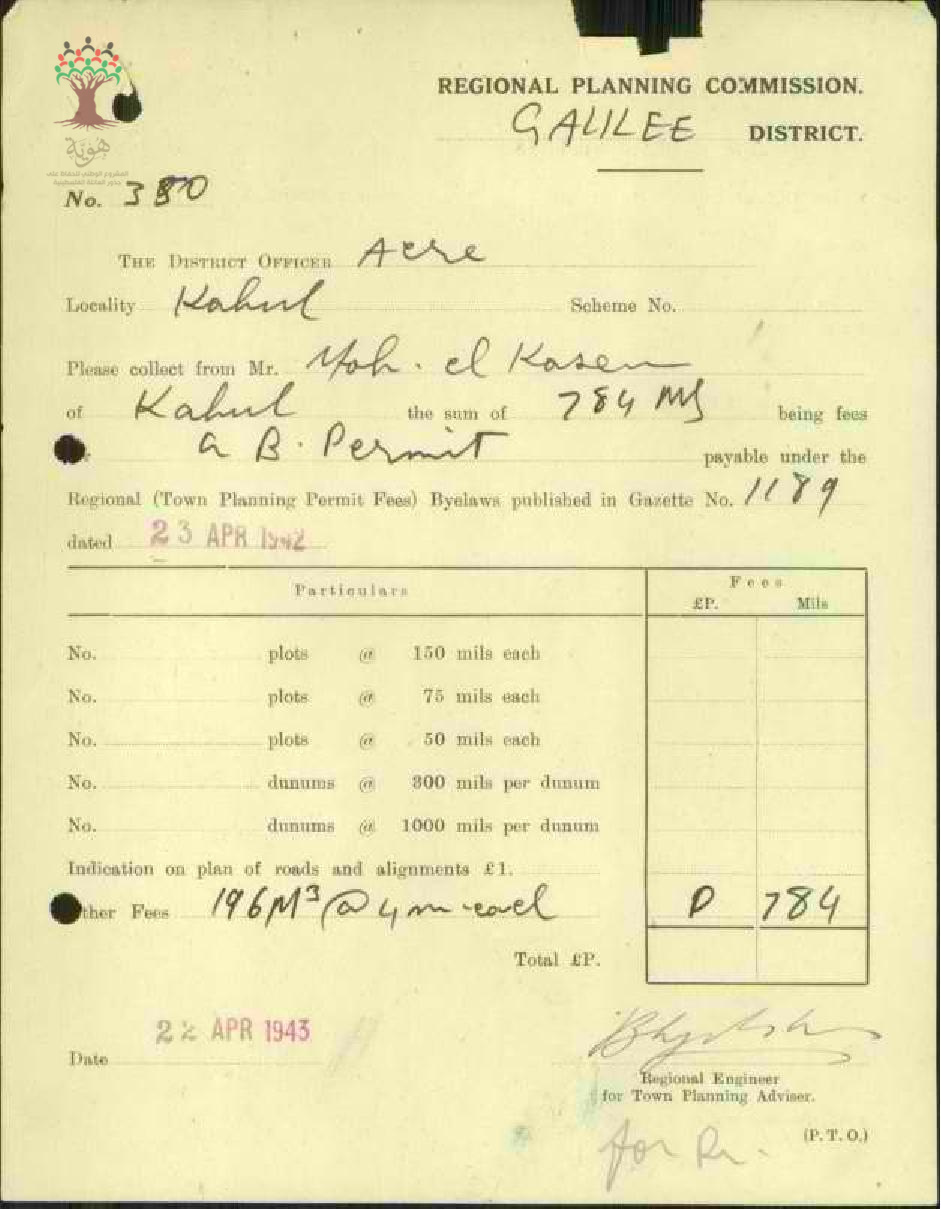 REGIONAL PLANNING COMMISSION.
GALILEE DISTRICT.
هوية
المشروع الوطني للحفاظ على
جذور العائلة الفلسطينية
No. 380
THE DISTRICT OFFICER Acre
Locality Kabul Scheme No.
Please collect from Mr. Moh. el Kasem
of Kabul the sum of 784 Mls being fees
a B. Permit payable under the
Regional (Town Planning Permit Fees) Byelaws published in Gazette No. 1189
dated 23 APR 1942
Particulars Fees
£P. Mils
No. plots @ 150 mils each
No. plots @ 75 mils each
No. plots @ 50 mils each
No. dunums @ 300 mils per dunum
No. dunums @ 1000 mils per dunum
Indication on plan of roads and alignments £1.
ther Fees 196 M³ @ 4 m. each 0 784
Total £P.
Date 22 APR 1943
Regional Engineer
for Town Planning Adviser.
(P. T. O.)
for